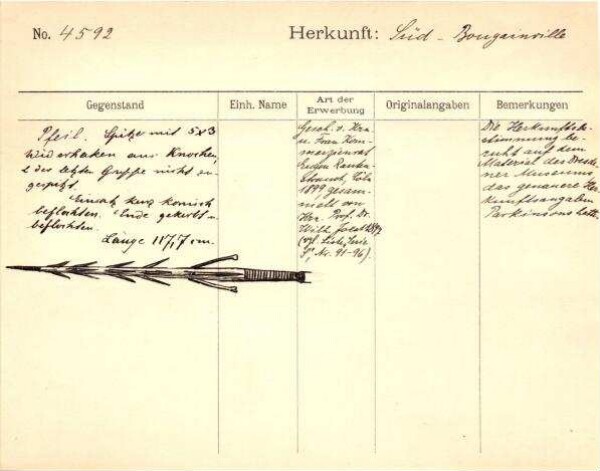 No. 4592
Herkunft: Süd-Bougainville
Gegenstand
Einh. Name
Art der Erwerbung
Originalangaben
Bemerkungen
Pfeil. Spitze mit 5x3
Widerhaken aus Knochen,
2 der letzten Gruppe nicht an-
gespitzt.
Einsatz kurz konisch
beflochten. Ende gekerbt u.
beflochten.
Länge 117,7 cm.
Gesch. v. Hrn.
u. Frau Kom-
merzienrat
Eugen Rauten-
strauch, Cöln
1899, gesam-
melt von
Hrn. Prof. Dr.
Wilh. Joest 1897
(vgl. Liste, Serie
Nr. 91-96).
Die Herkunftsbe-
stimmung be-
ruht auf dem
Material des Dresde-
ner Museums,
das genauere Her-
kunftsangaben
Parkinsons hatte.